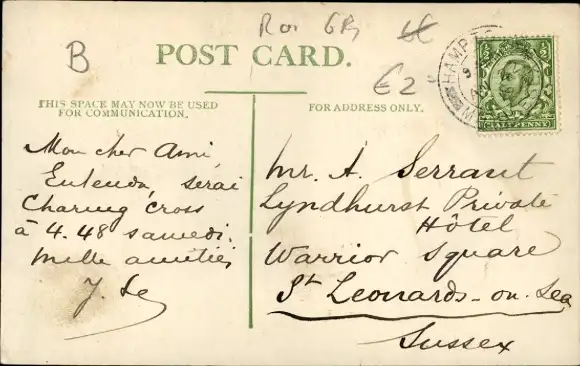 B
Roi GB
€2
POST CARD.
THIS SPACE MAY NOW BE USED
FOR COMMUNICATION.
FOR ADDRESS ONLY.
HALFPENNY
HAMP
Mon cher Ami,
Entendu, serai
Charing Cross
à 4.48 samedi.
Mille amitiés
Mr. A. Serraut
Lyndhurst Private
Hôtel
Warrior Square
St Leonards-on-Sea
Sussex